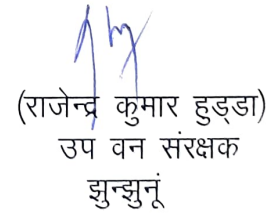 (राजेन्द्र कुमार हुड्डा)
उप वन संरक्षक
झुन्झुनूं